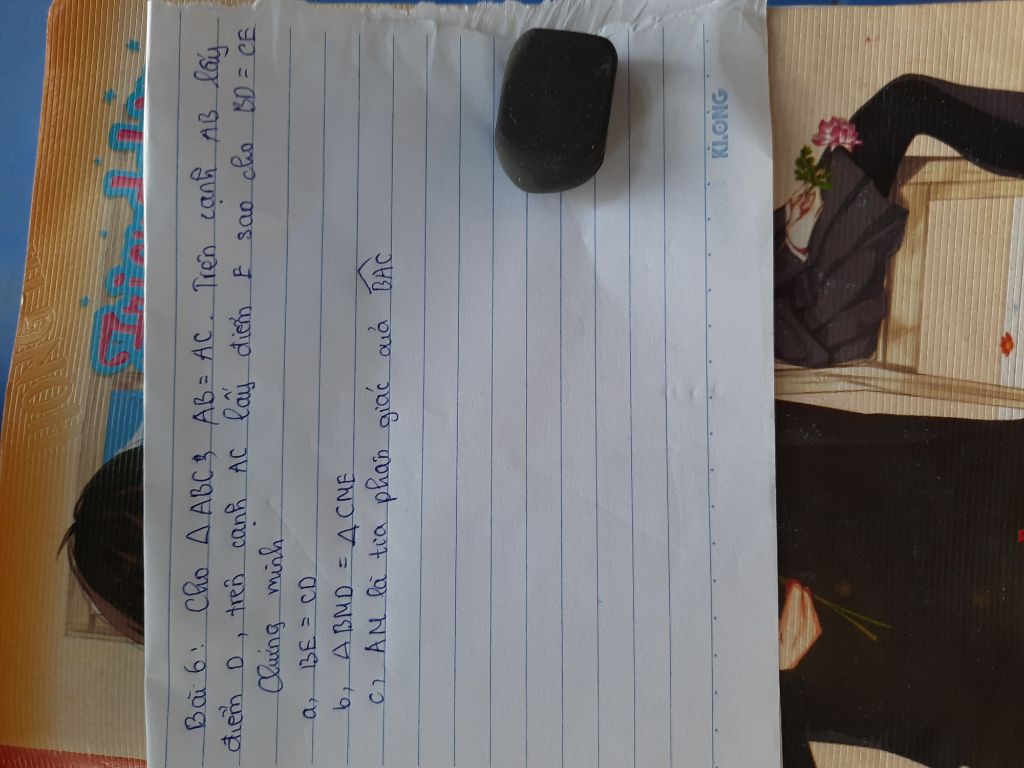 Bài 6: Cho △ABC, AB = AC. Trên cạnh AB lấy
điểm D, trên cạnh AC lấy điểm E sao cho BD = CE
Chứng minh
a, BE = CD
b, △BMD = △CME
c, AM là tia phân giác của BAC
KLONG